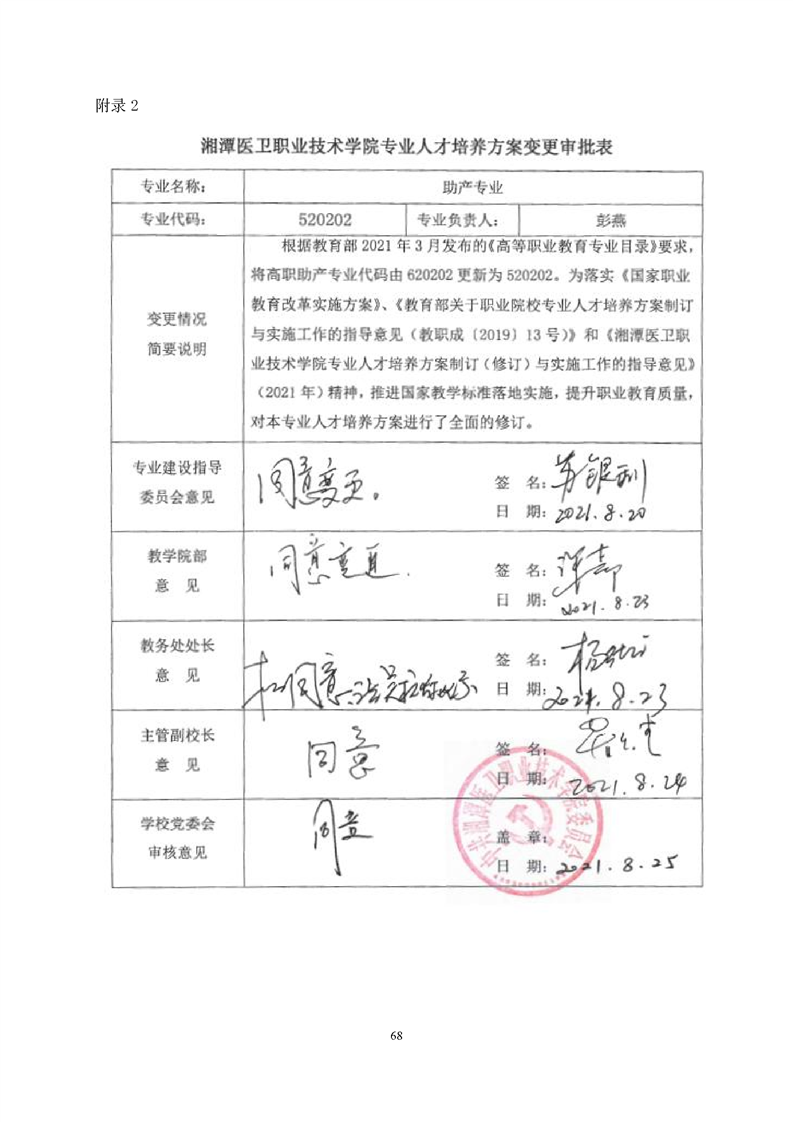 附录 2
湘潭医卫职业技术学院专业人才培养方案变更审批表
专业名称： 助产专业
专业代码： 520202 专业负责人： 彭燕
变更情况
简要说明
根据教育部 2021 年 3 月发布的《高等职业教育专业目录》要求，
将高职助产专业代码由 620202 更新为 520202。为落实《国家职业
教育改革实施方案》、《教育部关于职业院校专业人才培养方案制订
与实施工作的指导意见（教职成〔2019〕13 号）》和《湘潭医卫职
业技术学院专业人才培养方案制订（修订）与实施工作的指导意见》
（2021 年）精神，推进国家教学标准落地实施，提升职业教育质量，
对本专业人才培养方案进行了全面的修订。
专业建设指导
委员会意见
同意变更。
签 名：苏银利
日 期：2021.8.20
教学院部
意 见
同意变更.
签 名：
日 期：2021.8.23
教务处处长
意 见
同意
签 名：杨
日 期：2021.8.23
主管副校长
意 见
同意
签 名：
日 期：2021.8.24
学校党委会
审核意见
同意
盖 章：
日 期：2021.8.25
中共湘潭医卫职业技术学院委员会
68